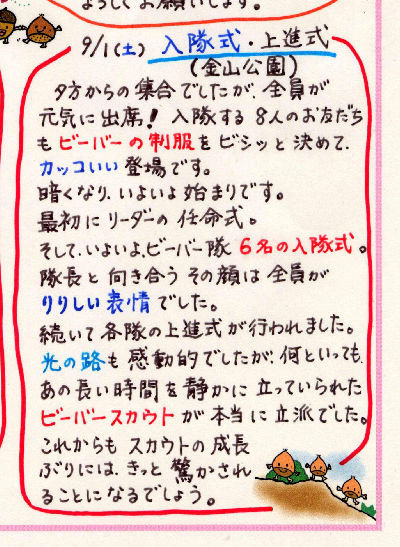 よろしくお願いします。
9/1(土) 入隊式・上進式
(金山公園)
夕方からの集合でしたが、全員が
元気に出席! 入隊する8人のお友だち
もビーバーの制服をビシッと決めて、
カッコいい登場です。
暗くなり、いよいよ始まりです。
最初にリーダーの任命式。
そして、いよいよ、ビーバー隊6名の入隊式。
隊長と向き合うその顔は全員が
りりしい表情でした。
続いて各隊の上進式が行われました。
光の路も感動的でしたが、何といっても、
あの長い時間を静かに立っていられた
ビーバースカウトが本当に立派でした。
これからもスカウトの成長
ぶりには、きっと驚かされ
ることになるでしょう。